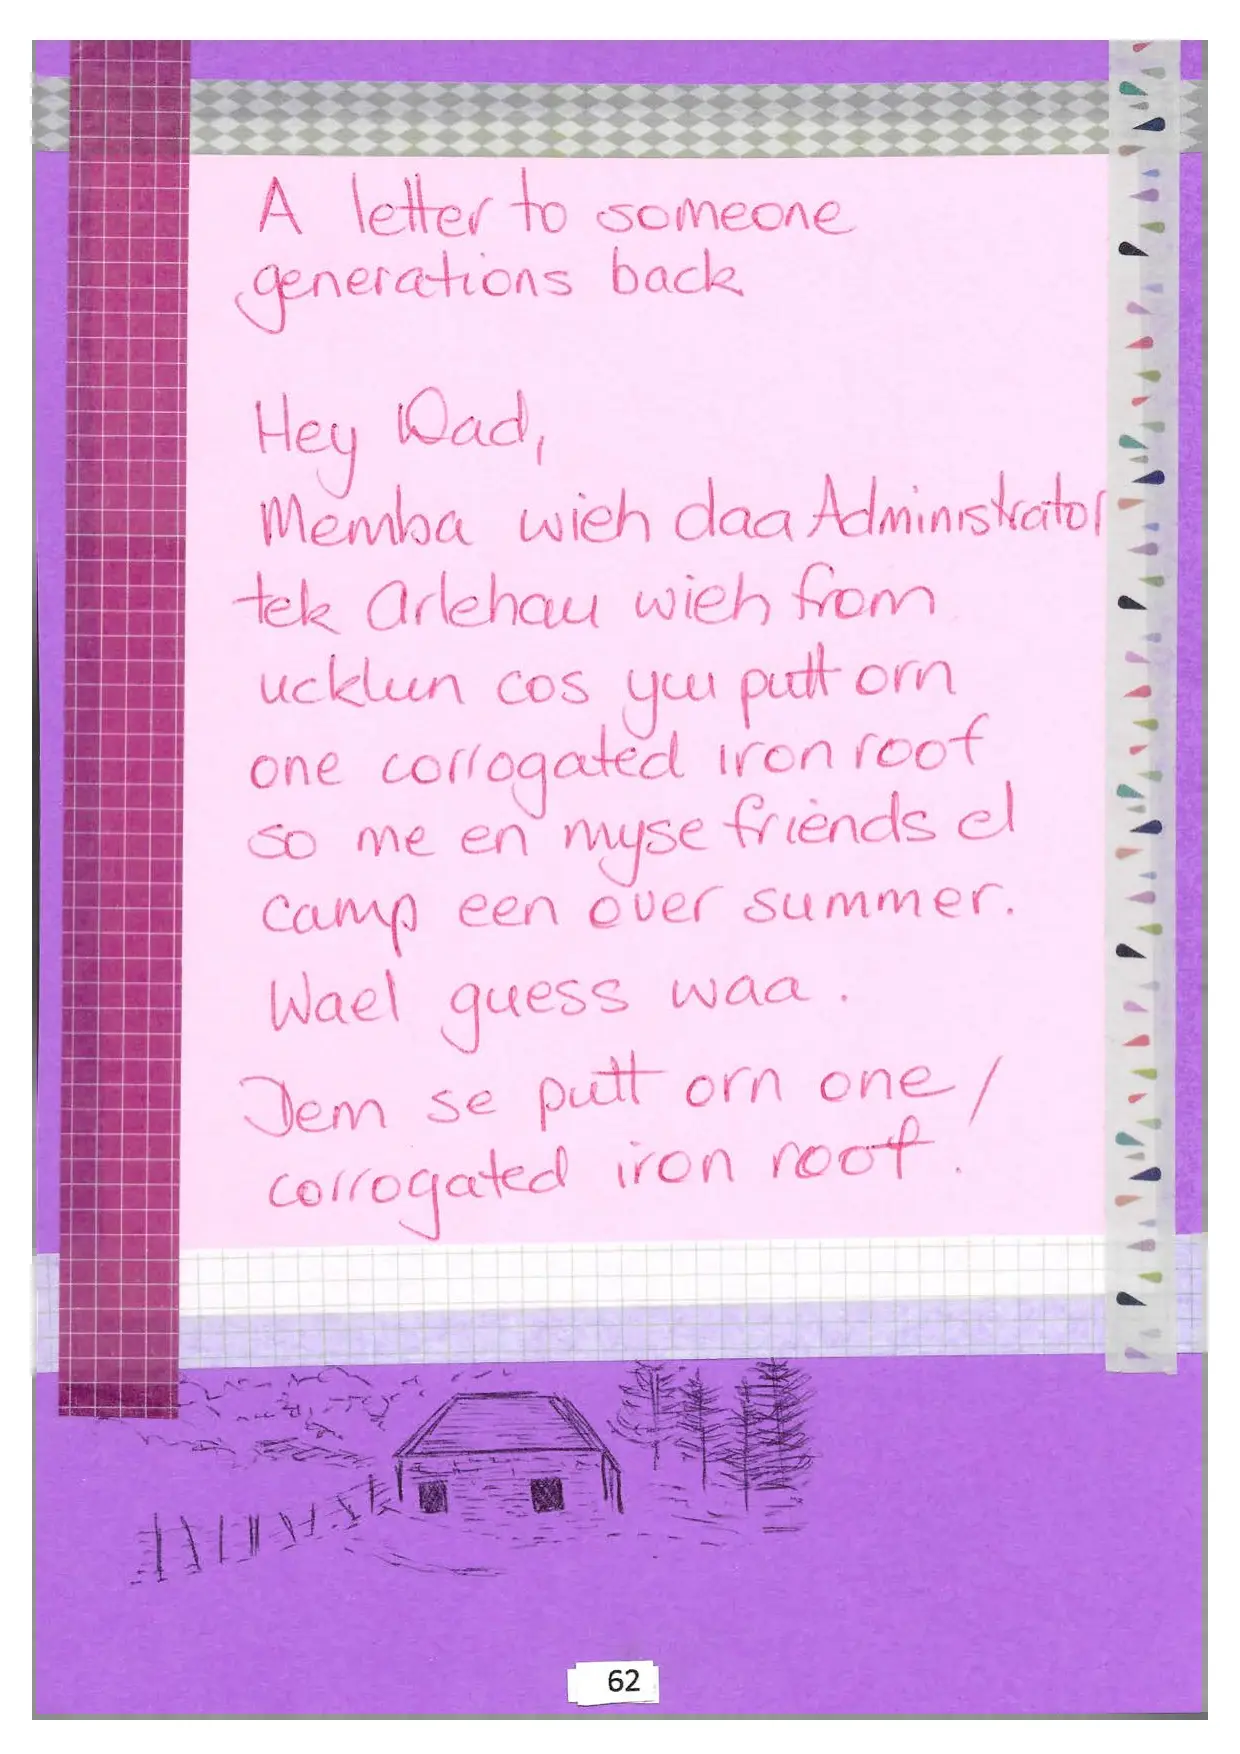 A letter to someone
generations back
Hey Dad,
Memba wieh daa Administrator
tek Arlehau wieh from
ucklun cos yuu putt orn
one corrogated iron roof
so me en myse friends el
camp een over summer.
Wael guess waa.
Dem se putt orn one/
corrogated iron roof.
62